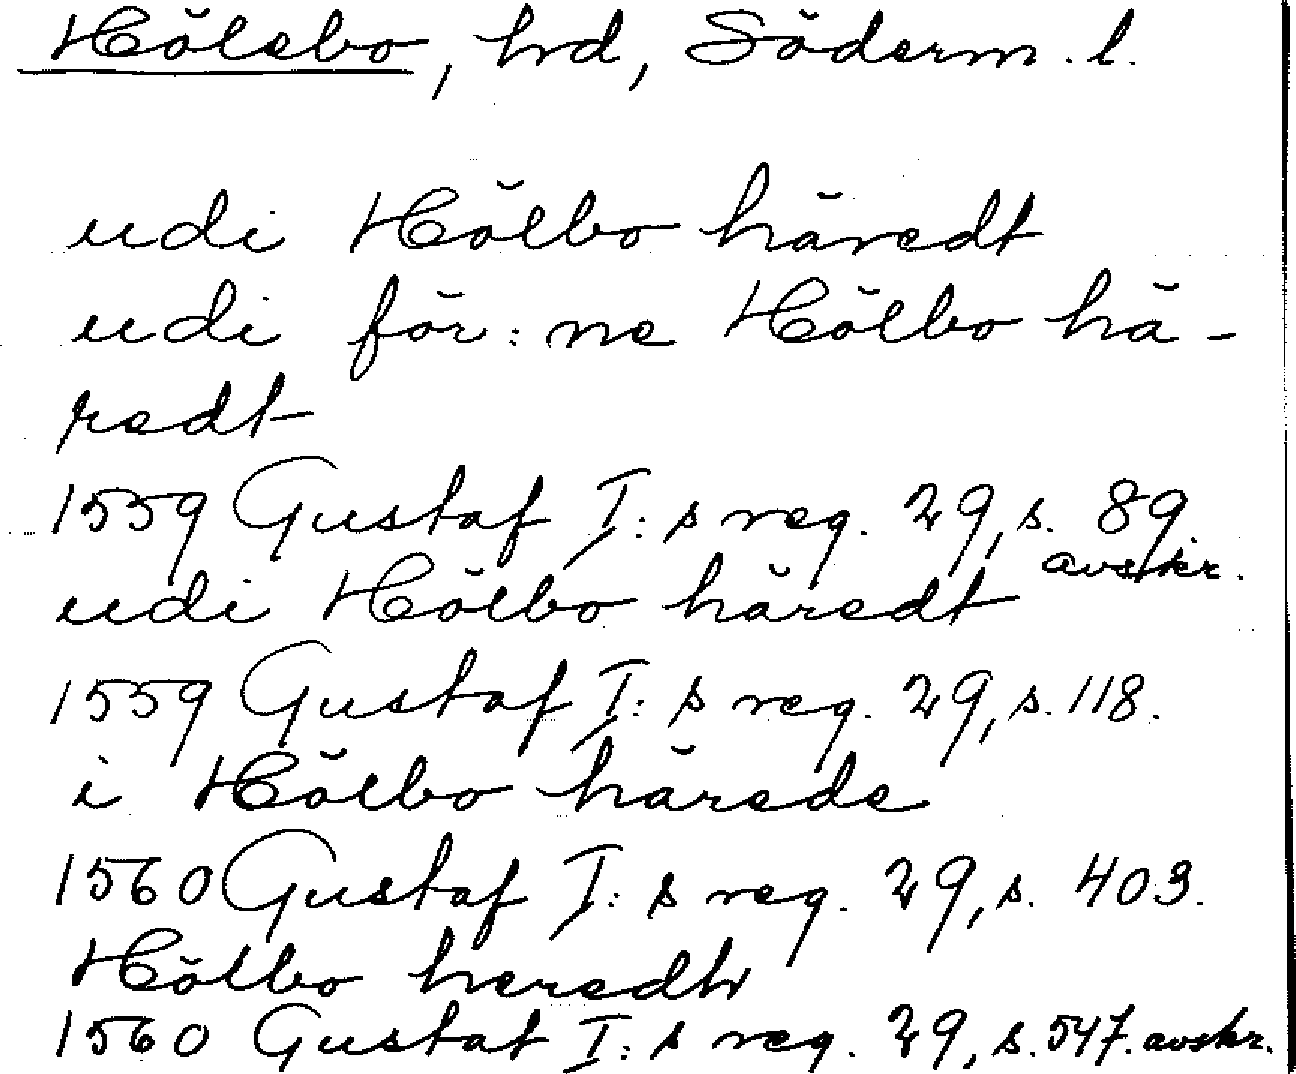 Hölebo, hd, Söderm. l.
udi Hölbo häredt
udi för: ne Hölbo hä-
redt
1559 Gustaf I: s reg. 29, s. 89.
avskr.
udi Hölbo häredt
1559 Gustaf I: s reg. 29, s. 118.
i Hölbo härede
1560 Gustaf I: s reg. 29, s. 403.
Hölbo heredh
1560 Gustaf I: s reg. 29, s. 547. avskr.